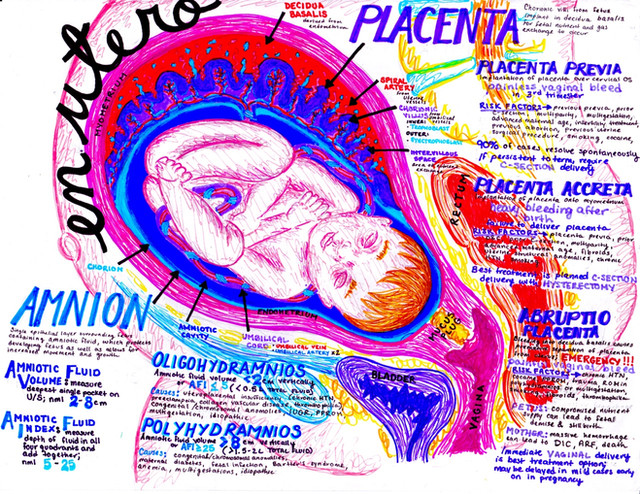 en utero
DECIDUA
BASALIS
derived from
endometrium
PLACENTA
Chorionic villi from fetus
implant in decidua basalis
for fetal nutrient and gas
exchange to occur
MYOMETRIUM
SPIRAL
ARTERY
from
uterine
vessels
CHORIONIC
VILLUS
INNER:
OUTER:
INTERVILLOUS
SPACE
PLACENTA PREVIA
Implantation of placenta over cervical OS
painless vaginal bleed
in 3rd trimester
RISK FACTORS → previous previa, prior
C-section, multiparity, multigestation,
advanced maternal age, infertility treatment,
previous abortion, previous uterine
surgical procedure, smoking, cocaine
90% of cases resolve spontaneously
If persistent to term, require
C-SECTION delivery
RECTUM
PLACENTA ACCRETA
Implantation of placenta onto myometrium
heavy bleeding after
birth
failure to deliver placenta
RISK FACTORS → placenta previa, prior
C-section, multiparity,
advanced maternal age, fibroids,
uterine structural anomalies, chronic
HTN, smoking
Best treatment is planned C-SECTION
delivery with HYSTERECTOMY
CHORION
AMNION
Single epithelial layer surrounding fetus
containing amniotic fluid, which protects
developing fetus as well as allows for
increased movement and growth
AMNIOTIC
CAVITY
UMBILICAL
CORD - UMBILICAL VEIN
- UMBILICAL ARTERY x2
ENDOMETRIUM
MUCUS
PLUG
VAGINA
BLADDER
ABRUPTIO
PLACENTA
Bleeding into decidua basalis causes
separation of placenta
from uterus EMERGENCY!!!
painful vaginal bleed
RISK FACTORS → maternal HTN,
trauma, ROMA
polyhydramnios or multigestation,
fibroids, thrombophilia
FETUS: compromised nutrient
supply can lead to fetal
demise & stillbirth
MOTHER: massive hemorrhage
can lead to DIC, ARF, death
Immediate VAGINAL delivery
is best treatment option;
may be delayed in mild cases early
on in pregnancy
AMNIOTIC FLUID
VOLUME: measure
deepest single pocket on
U/S; nml 2-8cm
AMNIOTIC FLUID
INDEX: measure
depth of fluid in all
four quadrants and
add together;
nml 5-25
OLIGOHYDRAMNIOS
Amniotic fluid volume <2cm vertically
or AFI ≤5 (<0.5L TOTAL FLUID)
CAUSES: uteroplacental insufficiency (chronic HTN,
preeclampsia, collagen vascular disease, thrombophilia),
congenital/chromosomal anomalies, IUGR, PPROM,
multigestation, idiopathic
POLYHYDRAMNIOS
Amniotic fluid volume >8cm vertically
or AFI ≥25 (>1.5-2L TOTAL FLUID)
CAUSES: congenital/chromosomal anomalies,
maternal diabetes, fetal infection, Bartter's syndrome,
anemia, multigestations, idiopathic